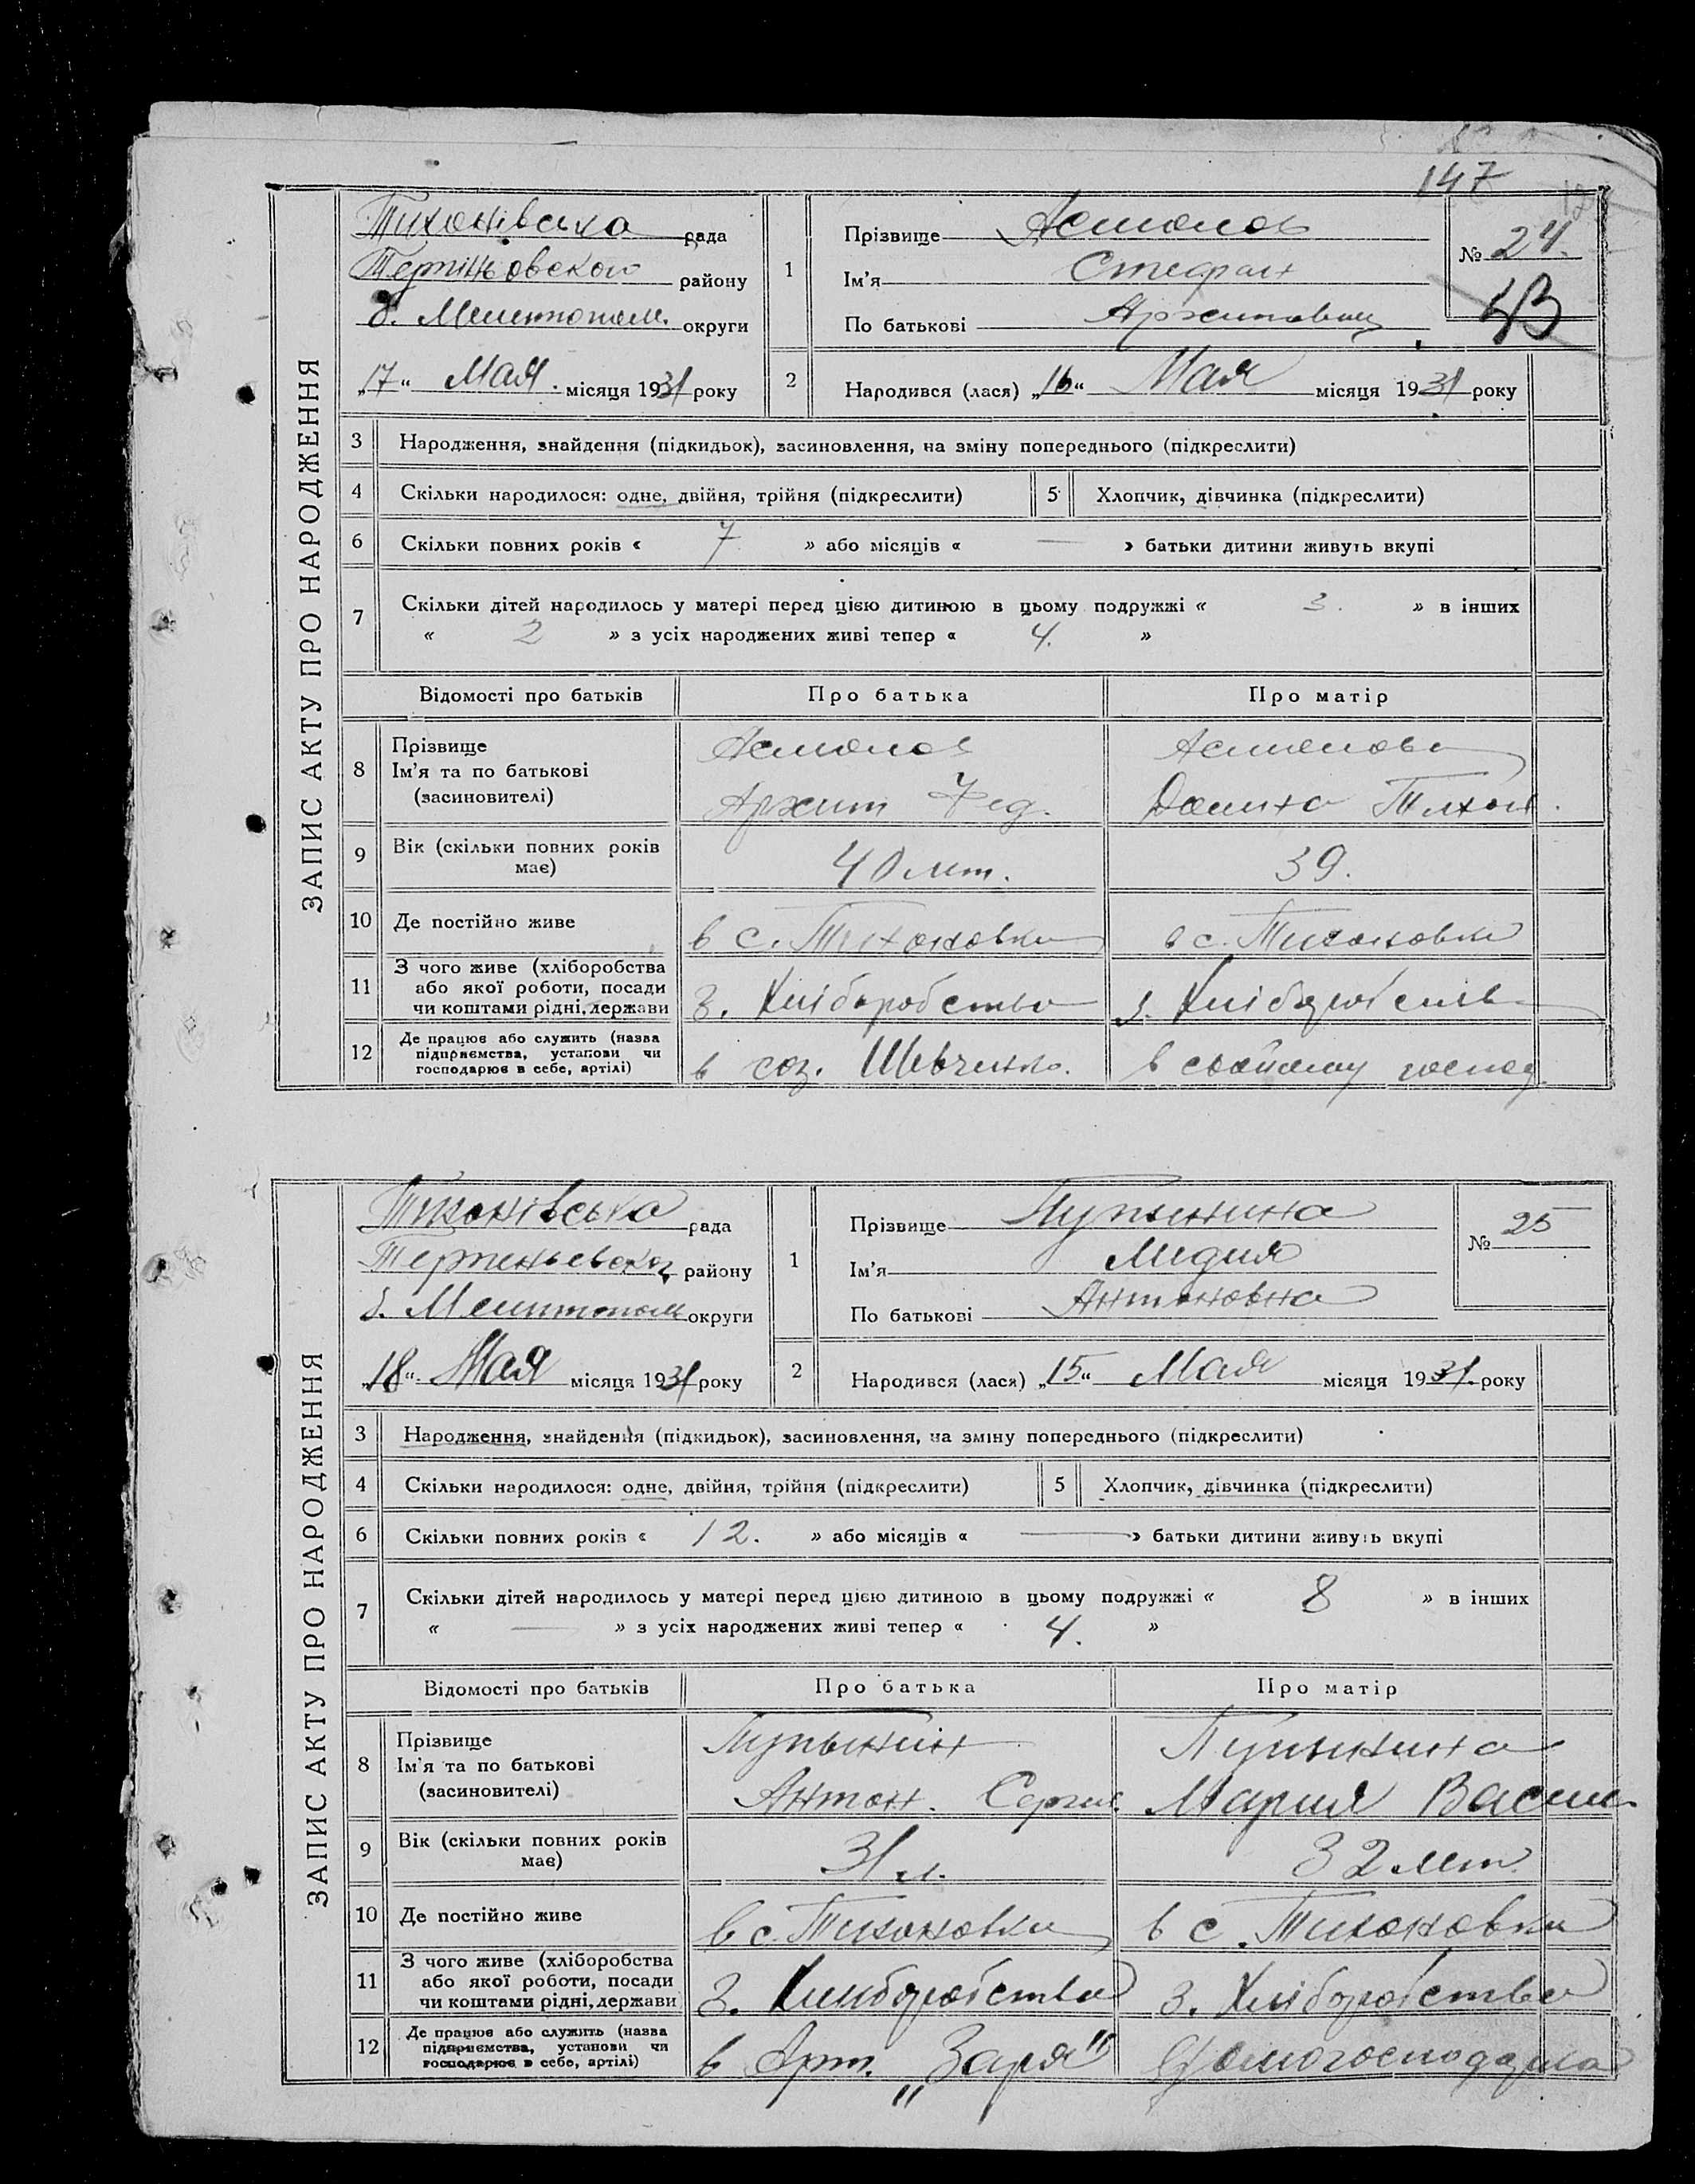 147
ЗАПИС АКТУ ПРО НАРОДЖЕННЯ
Тихонівська рада
району
б. Мелитопол. округи
„17“ Мая. місяця 1931 року
1 Прізвище Асмолов
Ім'я Стефан
По батькові Архипович
№ 24.
2 Народився (лася) „16“ Мая місяця 1931 року
3 Народження, знайдення (підкидьок), засиновлення, на зміну попереднього (підкреслити)
4 Скільки народилося: одне, двійня, трійня (підкреслити) 5 Хлопчик, дівчинка (підкреслити)
6 Скільки повних років « 7 » або місяців « — » батьки дитини живуть вкупі
7 Скільки дітей народилось у матері перед цією дитиною в цьому подружжі « 3. » в інших
« 2 » з усіх народжених живі тепер « 4. »
Відомості про батьків Про батька Про матір
8 Прізвище Асмолов Асмолова
Ім'я та по батькові
(засиновителі) Архип Фед. Тихон.
9 Вік (скільки повних років має) 40 лет. 39.
10 Де постійно живе в с. Тихоновки в с. Тихоновки
11 З чого живе (хліборобства
або якої роботи, посади
чи коштами рідні, держави З. Хліборобства З. Хліборобства
12 Де працює або служить (назва
підприємства, установи чи
господарює в себе, артілі) в соз. Шевченко. в свойому господ.
ЗАПИС АКТУ ПРО НАРОДЖЕННЯ
Тихонівська рада
району
б. Мелитопол округи
„18“ Мая місяця 1931 року
1 Прізвище Пупынина
Ім'я Лидия
По батькові Антоновна
№ 25
2 Народився (лася) „15“ Мая місяця 1931 року
3 Народження, знайдення (підкидьок), засиновлення, на зміну попереднього (підкреслити)
4 Скільки народилося: одне, двійня, трійня (підкреслити) 5 Хлопчик, дівчинка (підкреслити)
6 Скільки повних років « 12. » або місяців « — » батьки дитини живуть вкупі
7 Скільки дітей народилось у матері перед цією дитиною в цьому подружжі « 8 » в інших
« — » з усіх народжених живі тепер « 4. »
Відомості про батьків Про батька Про матір
8 Прізвище Пупынін Пупынина
Ім'я та по батькові
(засиновителі) Антон. Сергие. Мария Васил.
9 Вік (скільки повних років має) 31 л. 32 лет.
10 Де постійно живе в с. Тихоновки в с. Тихоновки
11 З чого живе (хліборобства
або якої роботи, посади
чи коштами рідні, держави З. Хлиборобства З. Хліборобства
12 Де працює або служить (назва
підприємства, установи чи
господарює в себе, артілі) в Арт. „Заря“